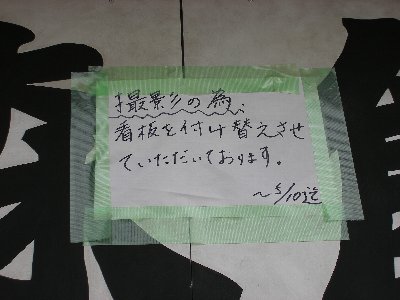 撮影の為、
看板を付け替えさせ
ていただいております。
～5/10迄